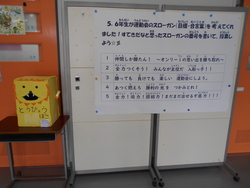 5、6年生が運動会のスローガン(目標・合言葉)を考えてくれ
ました!すてきだなと思ったスローガンの番号を書いて、投票し
よう☺
1 仲間しか勝たん! ~オンリー1の思い出を勝ち取れ~
2 全力つくそう! みんなが主役だ 人船っ子!!
3 勝っても 負けても 楽しい 運動会にしよう。
4 あつく燃えろ 勝利の光を つかみとれ!
5 全力!協力!団結力!まだまだ出せるぞ底力!
とうひょう
ばこ